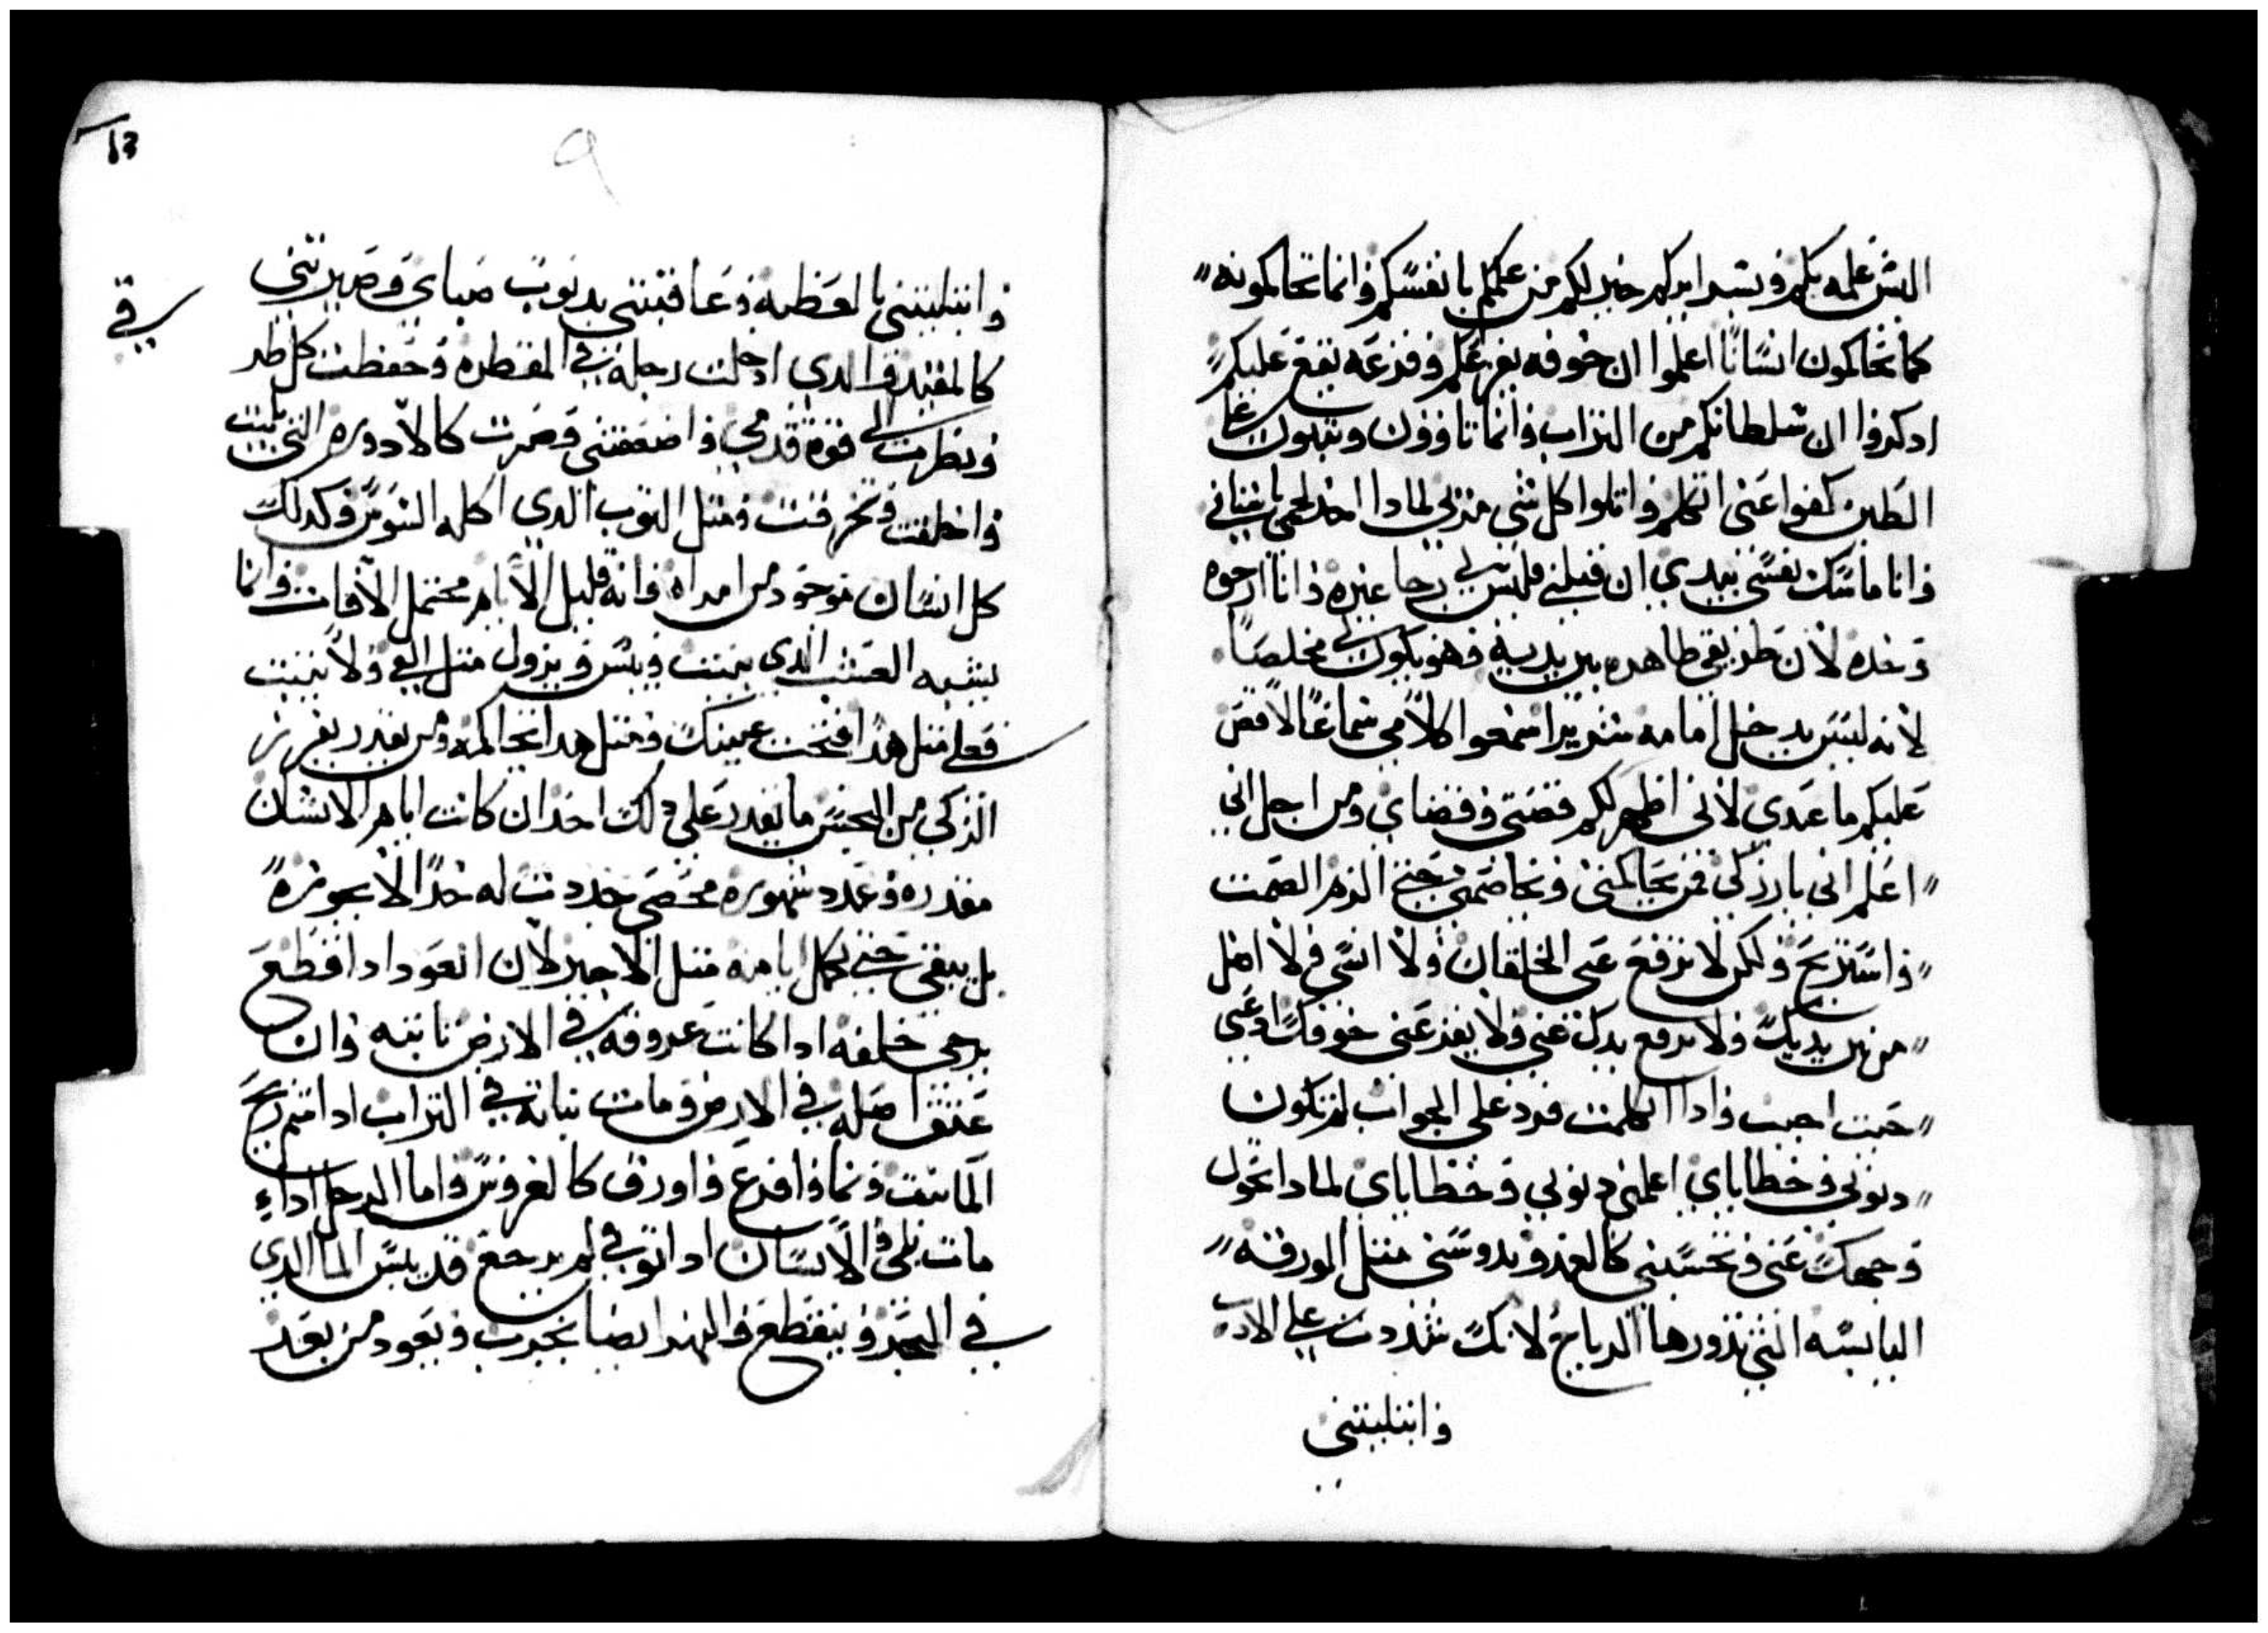 اليس علمه بكم وبسرايركم خير لكم من علمكم بانفسكم وانما تحاكمونه
كما تحاكمون انسانا اعلموا ان خوفه يفزعكم وفزعه يقع عليكم
ادكروا ان سلطانكم من التراب وانما تاوون وتبلون على
الطين كفوا عني اتكلم واتلوا كل شي لمادا اخد لحمي باسناني
وانا ماسك نفسي بيدي ان قبلني فليس لي رجا غيره وانا ارجوه
وحده لان طريقي طاهره بين يديه وهو يكون لي مخلصا
لانه ليس يدخل امامه شريرا اسمعوا كلامي سماعا لاقص
عليكم ما عندي لاني اظهر لكم قصتي وقضاي ومن اجل اني
اعلم اني بار زكي فمن يحاكمني ويخاصمني حتى الزم الصمت
واستريح ولكن لا ترفع عني الخلقان ولا انسى ولا اضل
من بين يديك ولا ترفع يدك عني ولا يفزعني خوفك ادعني
حيت اجبت وادا اتكلمت فرد علي الجواب لم تكون
دنوبي وخطاياي اعلمني دنوبي وخطاياي لمادا تحول
وجهك عني وتحسبني كالعدو وتدوسني متل الورقه
اليابسه التي تدورها الرياح لانك شددت علي الادب
وابتليتني
13
9
وابتليتني بالعظيمه وعاقبتني بدنوب صباي وصيرتني
كالمقيد والدي ادخلت رجله في المقطره وحفظت كل طر
في
ونظرت الى قوة قدمي واضعفتني وصرت كالادوره التي بليت
واخلقت وتخرقت ومتل التوب الدي اكله السوس وكدلك
كل انسان موجود من امراه فانه قليل الايام محتمل الافات وانما
يشبه العشب الدي ينبت وييبس ويزول متل الفي ولا يتبت
فعلى متل هدا فتحت عينيك ومتل هدا تحاكمه ومن يقدر يفرز
الزكي من النجس ما يقدر على دلك احد ان كانت ايام الانسان
مقدره وعدد شهوره محصى حددت له حدا لا يجوزه
بل يبقى حتى تكمل ايامه متل الاجير لان العود ادا قطع
يرجى خلفه ادا كانت عروقه في الارض تابته وان
عتق اصله في الارض ومات نباته في التراب ادا شم ريح
الما نبت ونما وافرع واورق كالغروس واما الرجل ادا
مات بلى والانسان ادا توفي لم يرجع قد يبس الما الدي
في البحر وينقطع والنهر ايضا يخرب ويعود من بعد